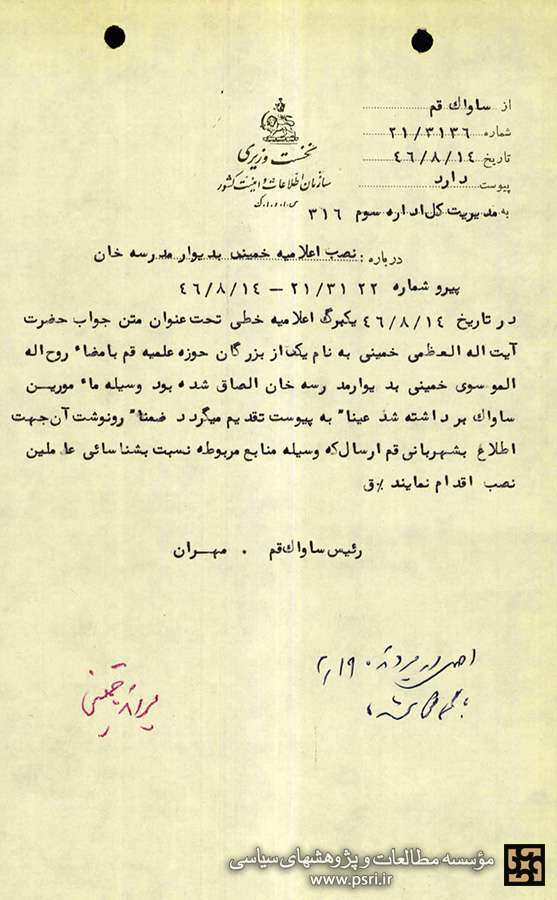 از ساواك قم
شماره ۲۱/۳۱۳۶
تاریخ ۴۶/۸/۱۴
پیوست دارد
به مدیریت کل اداره سوم ۳۱۶
نخست وزیری
سازمان اطلاعات و امنیت کشور
س.ا.و.ا.ک
درباره : نصب اعلامیه خمینی بدیوار مدرسه خان
پیرو شماره ۲۱/۳۱۲۲ – ۴۶/۸/۱۴
در تاریخ ۴۶/۸/۱۴ یکبرگ اعلامیه خطی تحت عنوان متن جواب حضرت
آیت اله العظمی خمینی به نام یک از بزرگان حوزه علمیه قم بامضاء روح اله
الموسوی خمینی بدیوار مدرسه خان الصاق شده بود وسیله ماءمورین
ساواك برداشته شد عینا" به پیوست تقدیم میگردد ضمنا" رونوشت آن جهت
اطلاع بشهربانی قم ارسال که وسیله منابع مربوطه نسبت بشناسائی عاملین
نصب اقدام نمایند ٪ق
رئیس ساواك قم . مهران
مؤسسه مطالعات و پژوهشهای سیاسی
www.psri.ir